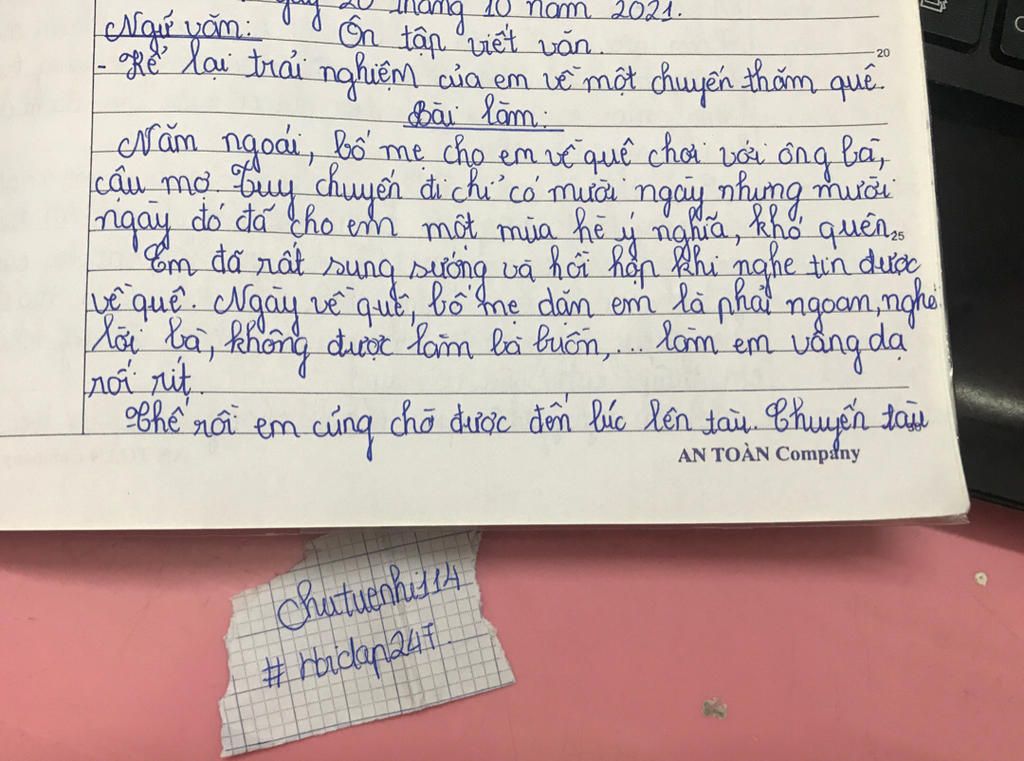 ngày 20 tháng 10 năm 2021.
Ngữ văn: Ôn tập viết văn.
- Kể lại trải nghiệm của em về một chuyến thăm quê.
20
Bài làm:
Năm ngoái, bố mẹ cho em về quê chơi với ông bà,
cậu mợ. Tuy chuyến đi chỉ có mười ngày nhưng mười
ngày đó đã cho em một mùa hè ý nghĩa, khó quên.
25
Em đã rất sung sướng và hồi hộp khi nghe tin được
về quê. Ngày về quê, bố mẹ dặn em là phải ngoan, nghe
lời bà, không được làm bà buồn,... làm em vâng dạ
rối rít.
Thế rồi em cũng chờ được đến lúc lên tàu. Chuyến tàu
AN TOÀN Company
chutuenhi114
# hoidap247.